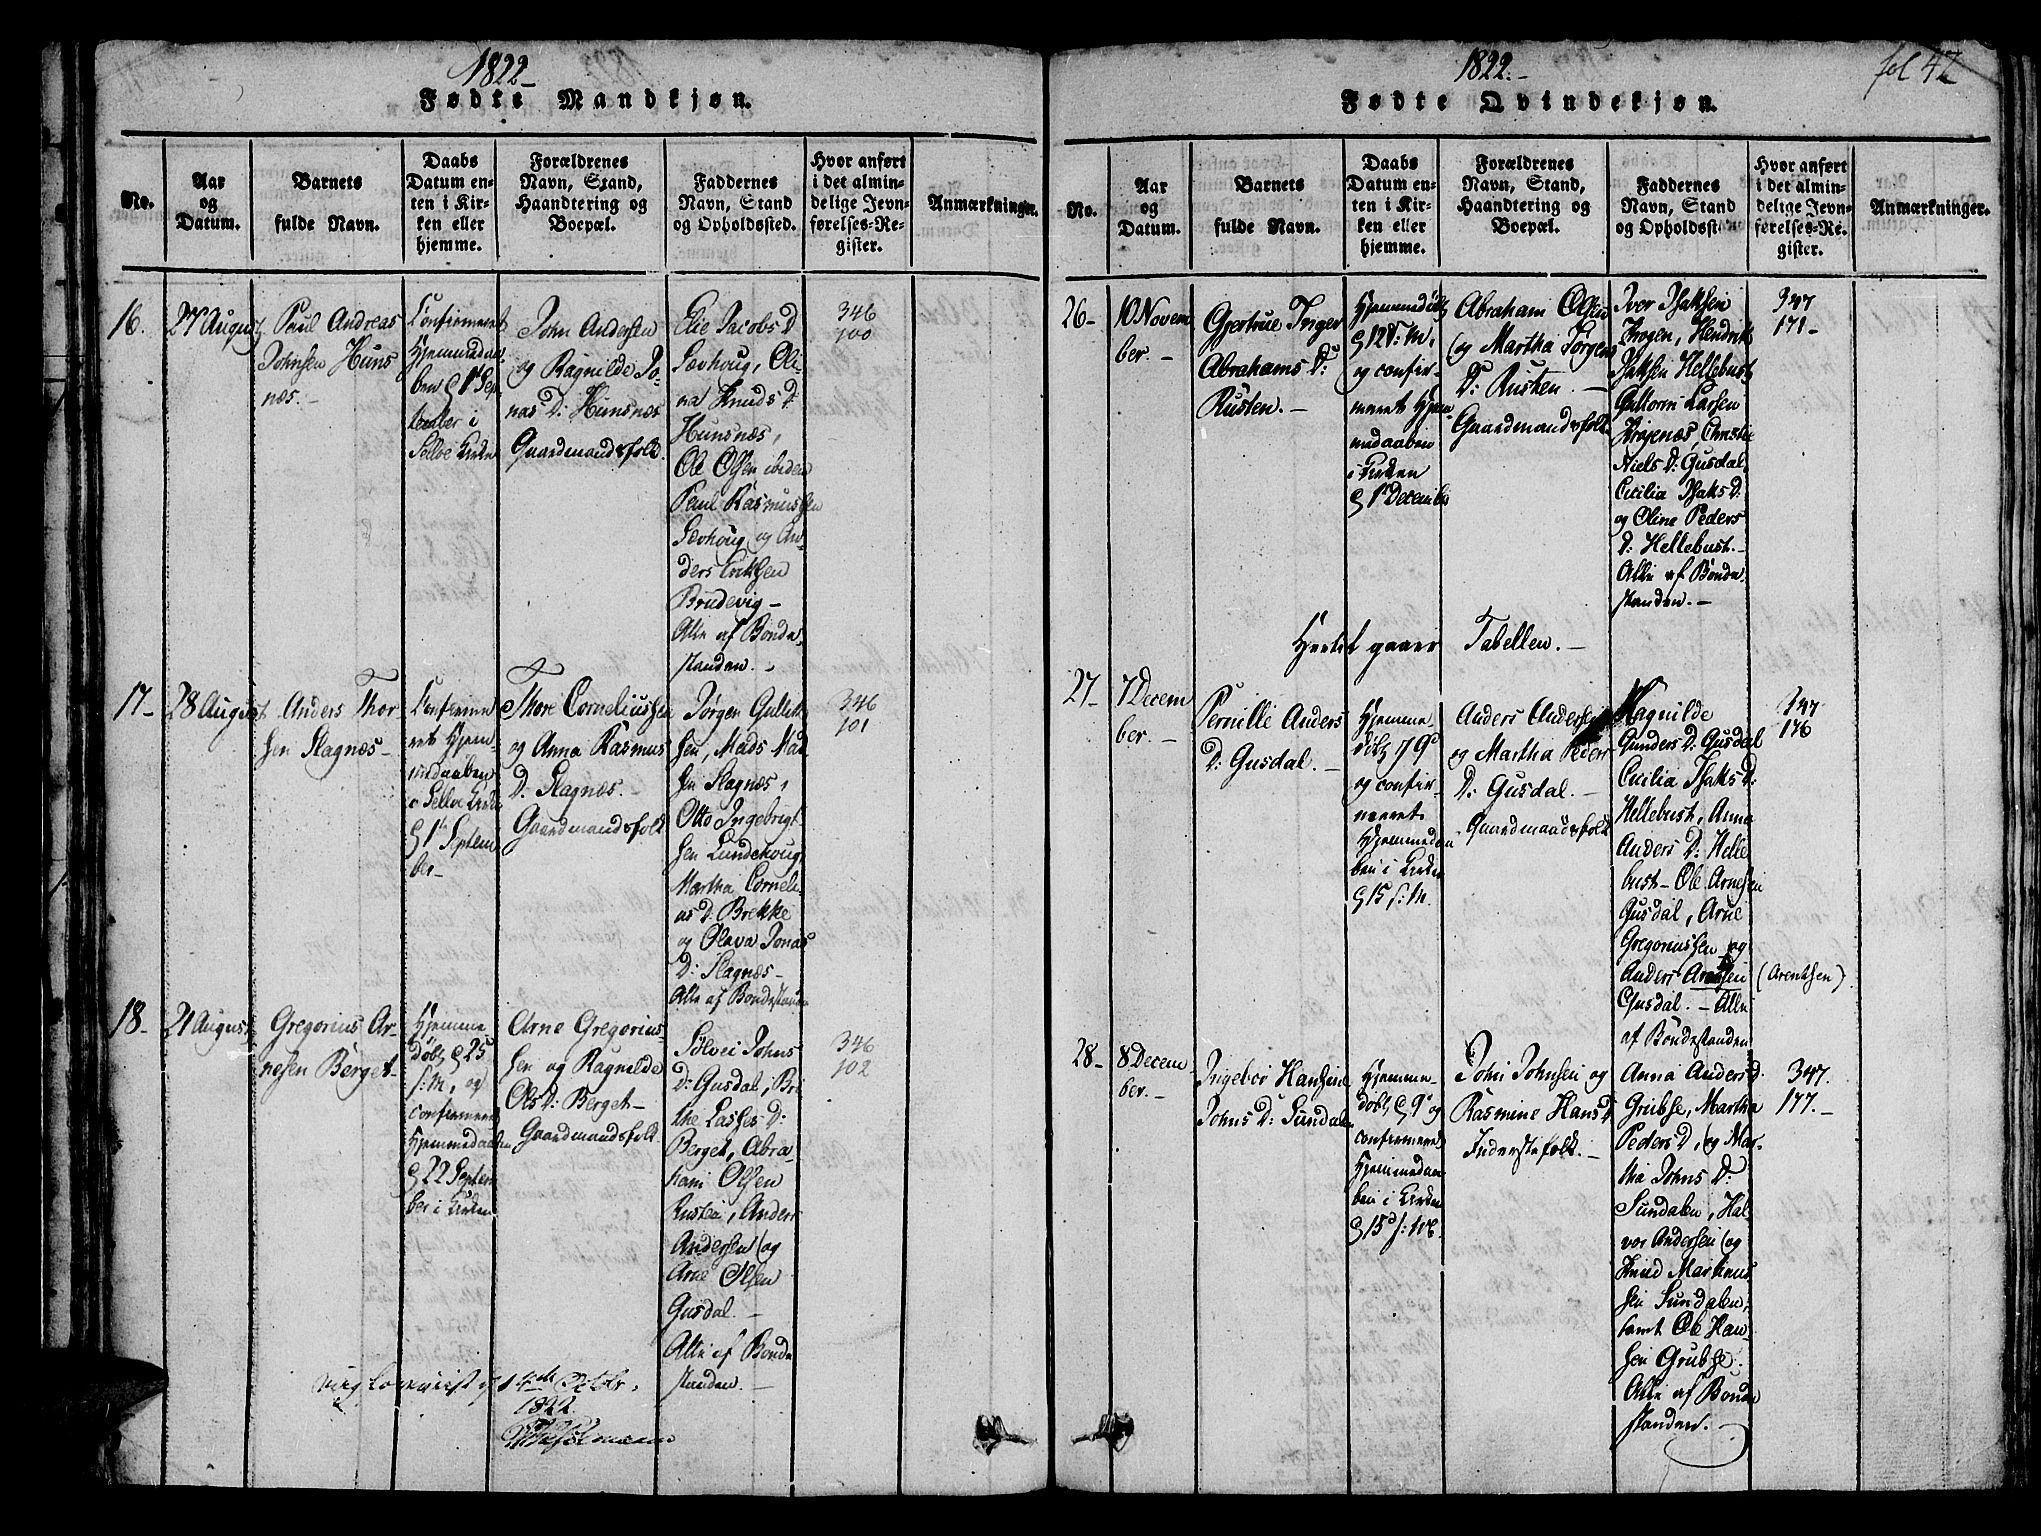 1822-
Fødte Mandkjøn.
No.
Aar
og
Datum.
Barnets
fulde Navn.
Daabs
Datum en-
ten i Kir-
ken eller
hjemme.
Forældrenes
Navn, Stand,
Haandtering og
Boepæl.
Faddernes
Navn, Stand
og Opholdssted.
Hvor anført
i det almin-
delige Jevn-
førelses-Re-
gister.
Anmærkninger.
16.
27 August
Paul Andreas
Johnsen Huns
næs.-
Confirmeret
Hjemmedaa
ben d 1 Sep
tember i
Selloe Kirke
John Andersen
og Ragnilde Jo-
nas D: Hunsnæs
Gaardmandsfolk
Elie Jacobs D
Sævhoug, Oli-
na Knuds D
Hunsnæs,
Ole Olsen ibiden
Paul Rasmussen
Sævhoug og An-
ders Erichsen
Brudevig-
Alle af Bonde
standen.-
346
100
17-
28 August
Anders Thor
sen Slagnæs-
Confirme
ret Hjem-
medaaben
i Selloe Kirke
d 1te Septem
ber-
Thore Corneliussen
og Anna Rasmus
D. Slagnæs.
Gaardmandsfolk
Jørgen Gullik
sen, Mads Mad
sen Slagnæs,
Otto Ingebrigt
sen Lundehoug,
Martha Corneli-
us D: Brekke
og Olava Jonas
D: Slagnæs-
Alle af Bondestanden
346
101
18-
21 August
Gregorius Ar-
nesen Berget-
Hjemme-
døbt d 25
s:M, og
confirmeret
Hjemmedaaben
d 22 Septem
ber i Kirken
Arne Gregorius-
sen og Ragnilde
Ols D: Berget-
Gaardmandsfolk
Sølvei Johns
D: Gusdal, Bri
the Lasses D:
Berget, Abra-
ham Olsen
Rusten, Anders
Andersen og
Arne Olsen
Gusdal.-
Alle af Bonde
standen.-
346
102
1822.
1822.-
fol 42
Fødte Qvindekjøn.
No.
Aar
og
Datum.
Barnets
fulde Navn.
Daabs
Datum en-
ten i Kir-
ken eller
hjemme.
Forældrenes
Navn, Stand,
Haandtering og
Boepæl.
Faddernes
Navn, Stand
og Opholdsst
Hvor anført
i det almin-
delige Jevn-
førelses-Re-
gister.
Anmærkninger.
26-
10 Novem
ber.-
Gjertrue Inger
Abrahams D:
Rusten.-
Hjemmedøbt
d 12 s: M,
og confir-
meret Hjem
medaaben
i Kirken
d 1 December
Abraham Olsen
og Martha Jørgens
D: Rusten.-
Gaardmandsfolk
Iver Isaksen
Krogen, Hendrik
Isaksen Hellebust
Guttorm Larsen
Krogenæs, Christie
Niels D: Gusdal,
Cicilia Isaks D:
og Oline Peders
D: Hellebust.-
Alle af Bonde
standen.-
347
171-
Hertil gaaer Tabellen.-
27-
7 Decem
ber.-
Pernille Anders
D: Gusdal.-
Hjemme
døbt d 9
og confir-
meret
Hjemmedaa
ben i Kirken
d 15 s: M.
Anders Andersen
og Martha Peders
D: Gusdal.-
Gaardmandsfolk
Ragnilde
Gunders D: Gusdal
Cicilia Isaks D:
Hellebust, Anna
Anders D: Helle
bust- Ole Arnesen
Gusdal, Arne
Gregoriussen og
Anders Arentsen
Gusdal.- Alle
af Bondestanden
347
176
(Arentsen).
28-
8 Decem-
ber.-
Ingebor Hansine
Johns D: Sundalen
Hjemme-
døbt d 9 og
confirmeret
Hjemmedaa
ben i Kirken
d 15 s: M.
John Johnsen og
Rasmine Hans D
Inderstefolk.-
Anna Anders D.
Grubse, Martha
Peders D, og Mar-
tha Johns D:
Sundalen, Hal
vor Andersen og
Knud Martinus
sen Sundalen,
samt Ole Han-
sen Grubse.
Alle af Bonde
standen.-
347.
177.-